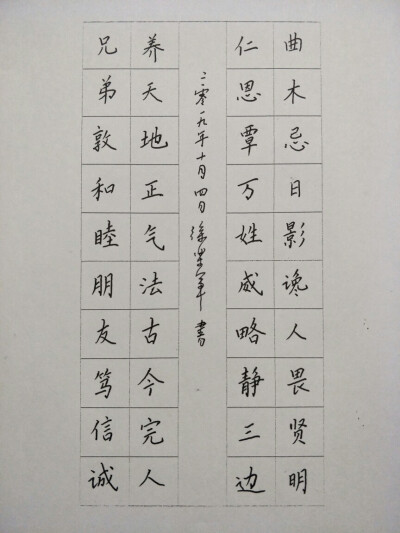 曲木忌日影谗人畏贤明
仁恩覃万姓威略静三边
二零一九年十月四日徐荣军书
养天地正气法古今完人
兄弟敦和睦朋友笃信诚